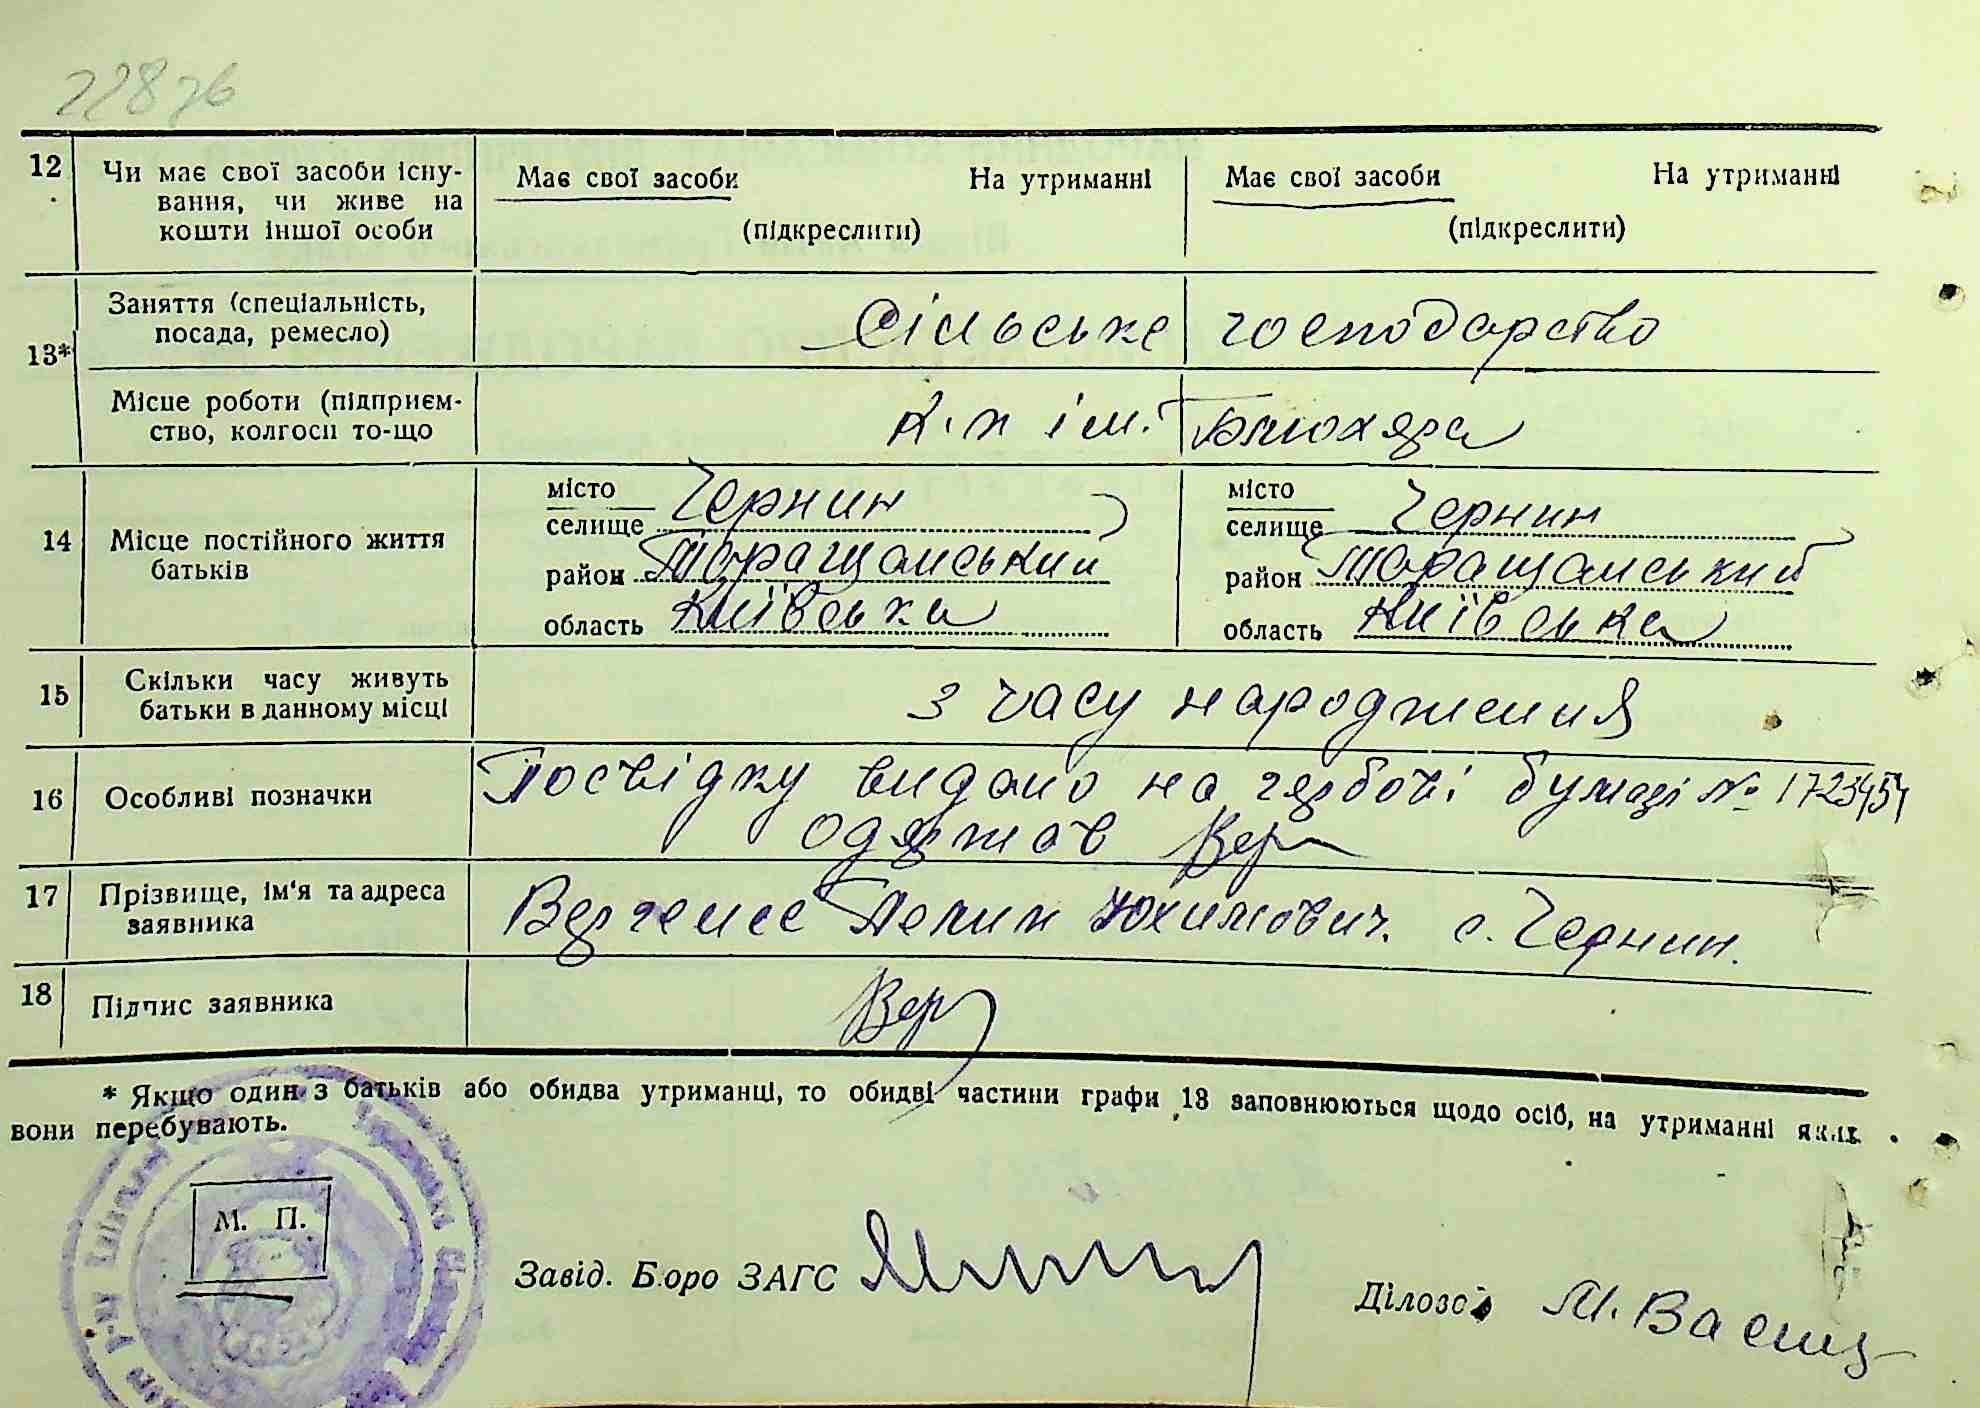 228зв
12 Чи має свої засоби існу-
вання, чи живе на
кошти іншої особи
Має свої засоби На утриманні
(підкреслити)
Має свої засоби На утриманні
(підкреслити)
13* Заняття (спеціальність,
посада, ремесло)
Сільське господарство
Місце роботи (підприєм-
ство, колгосп то-що
К.п ім. Блюхера
14 Місце постійного життя
батьків
місто
селище Чернин
район Таращанський
область Київська
місто
селище Чернин
район Таращанський
область Київська
15 Скільки часу живуть
батьки в данному місці
з часу народження
16 Особливі позначки
Посвідку видано на гербові бумазі №
одержав Вер
17 Прізвище, ім'я та адреса
заявника
Юхимович. с. Чернин.
18 Підпис заявника
Вер
* Якщо один з батьків або обидва утриманці, то обидві частини графи 13 заповнюються щодо осіб, на утриманні яких
вони перебувають.
М. П.
Завід. Бюро ЗАГС
Діловод М.